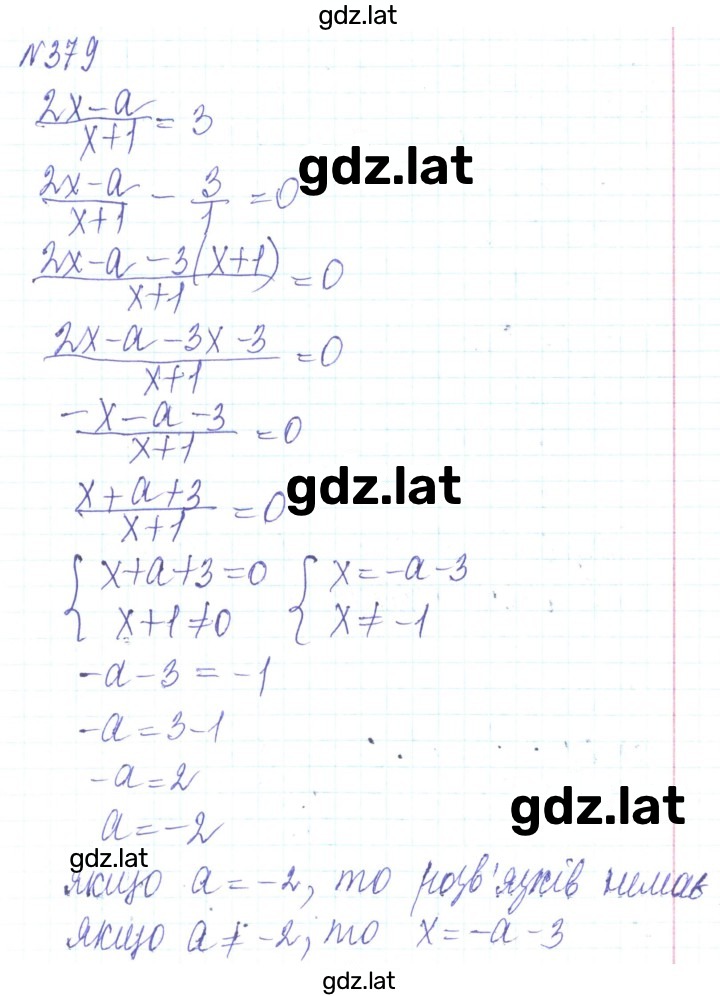 gdz.lat
№379
(2x-a)/(x+1) = 3
gdz.lat
(2x-a)/(x+1) - 3/1 = 0
(2x-a-3(x+1))/(x+1) = 0
(2x-a-3x-3)/(x+1) = 0
(-x-a-3)/(x+1) = 0
gdz.lat
(x+a+3)/(x+1) = 0
{ x+a+3=0 { x=-a-3
{ x+1≠0 { x≠-1
-a-3=-1
-a=3-1
-a=2
gdz.lat
a=-2
gdz.lat
якщо a=-2, то розв'язків немає
якщо a≠-2, то x=-a-3
gdz.lat